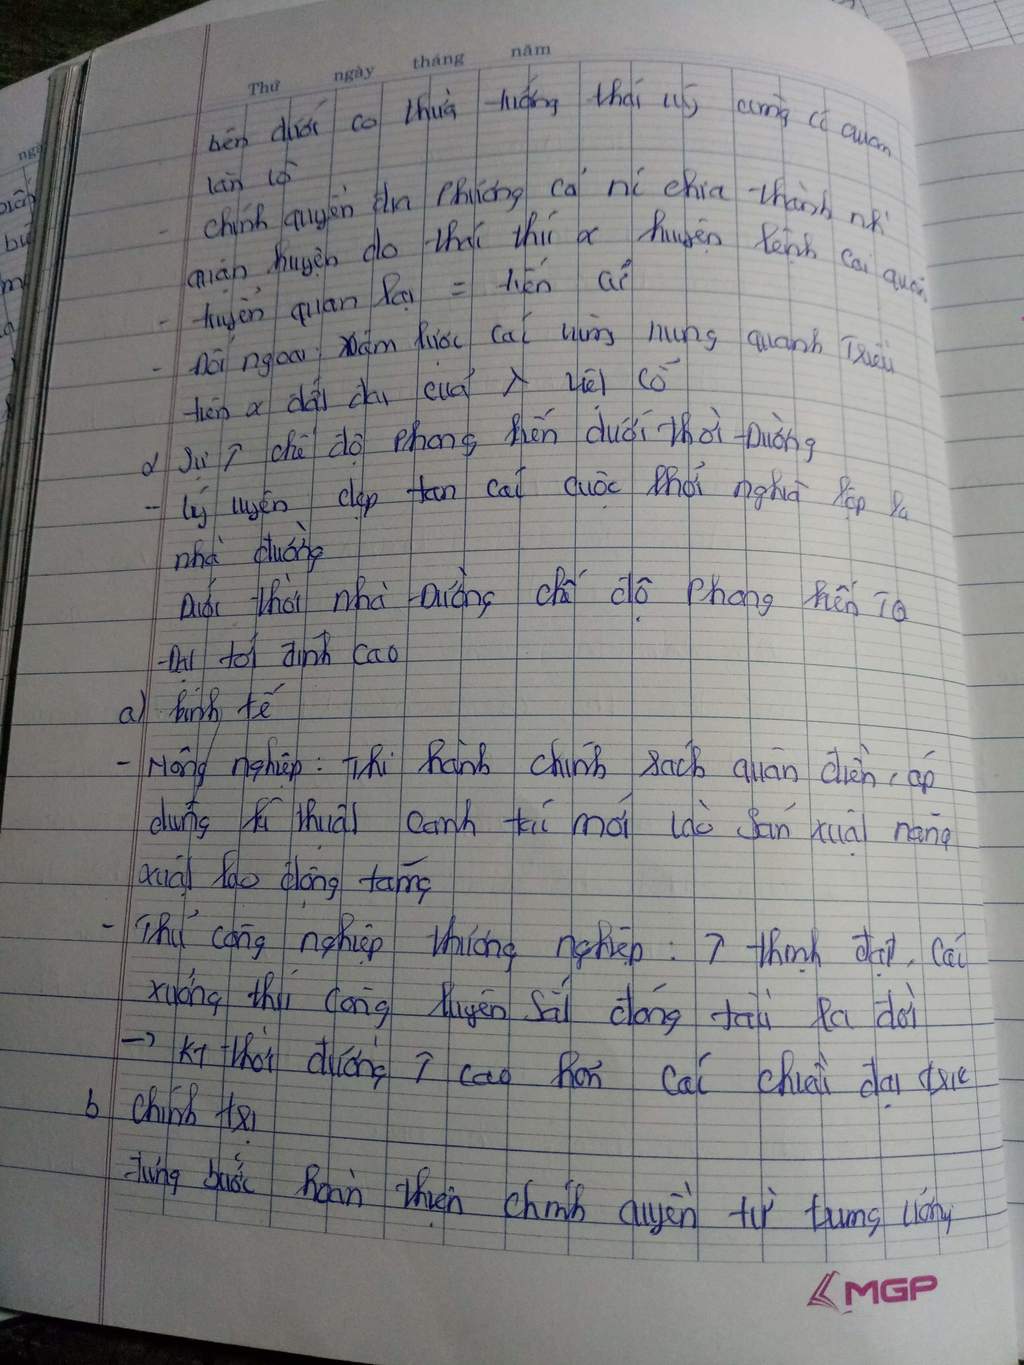 Thứ ngày tháng năm
bên dưới có thừa tướng thái uý cùng cá quan
lan có
- chính quyền địa phương cả nc chia thành nh`
quận huyện do thái thú α huyện lệnh cai quản
- tuyển quan lại = tiến cử
- Đối ngoại: xâm lược các vùng xung quanh Triều
tiên α đất đai của λ việt cổ
2 Sự ↑ chế độ phong kiến dưới thời Đường
- Lý uyên dẹp tan các cuộc khởi nghĩa lập ra
nhà đường
Dưới thời nhà Đường chế độ Phong kiến TQ
Đạt tới đỉnh cao
a) kinh tế
- Nông nghiệp: Thi hành chính sách quân điền, áp
dụng kĩ thuật canh tác mới vào sản xuất năng
xuất lao động tăng
- Thủ công nghiệp thương nghiệp: ↑ thịnh đạt, các
xưởng thủ công luyện sắt đóng tàu ra đời
-> KT thời đường ↑ cao hơn các chiều đại trc
b Chính trị
từng bước hoàn thiện chính quyền từ trung ương
MGP